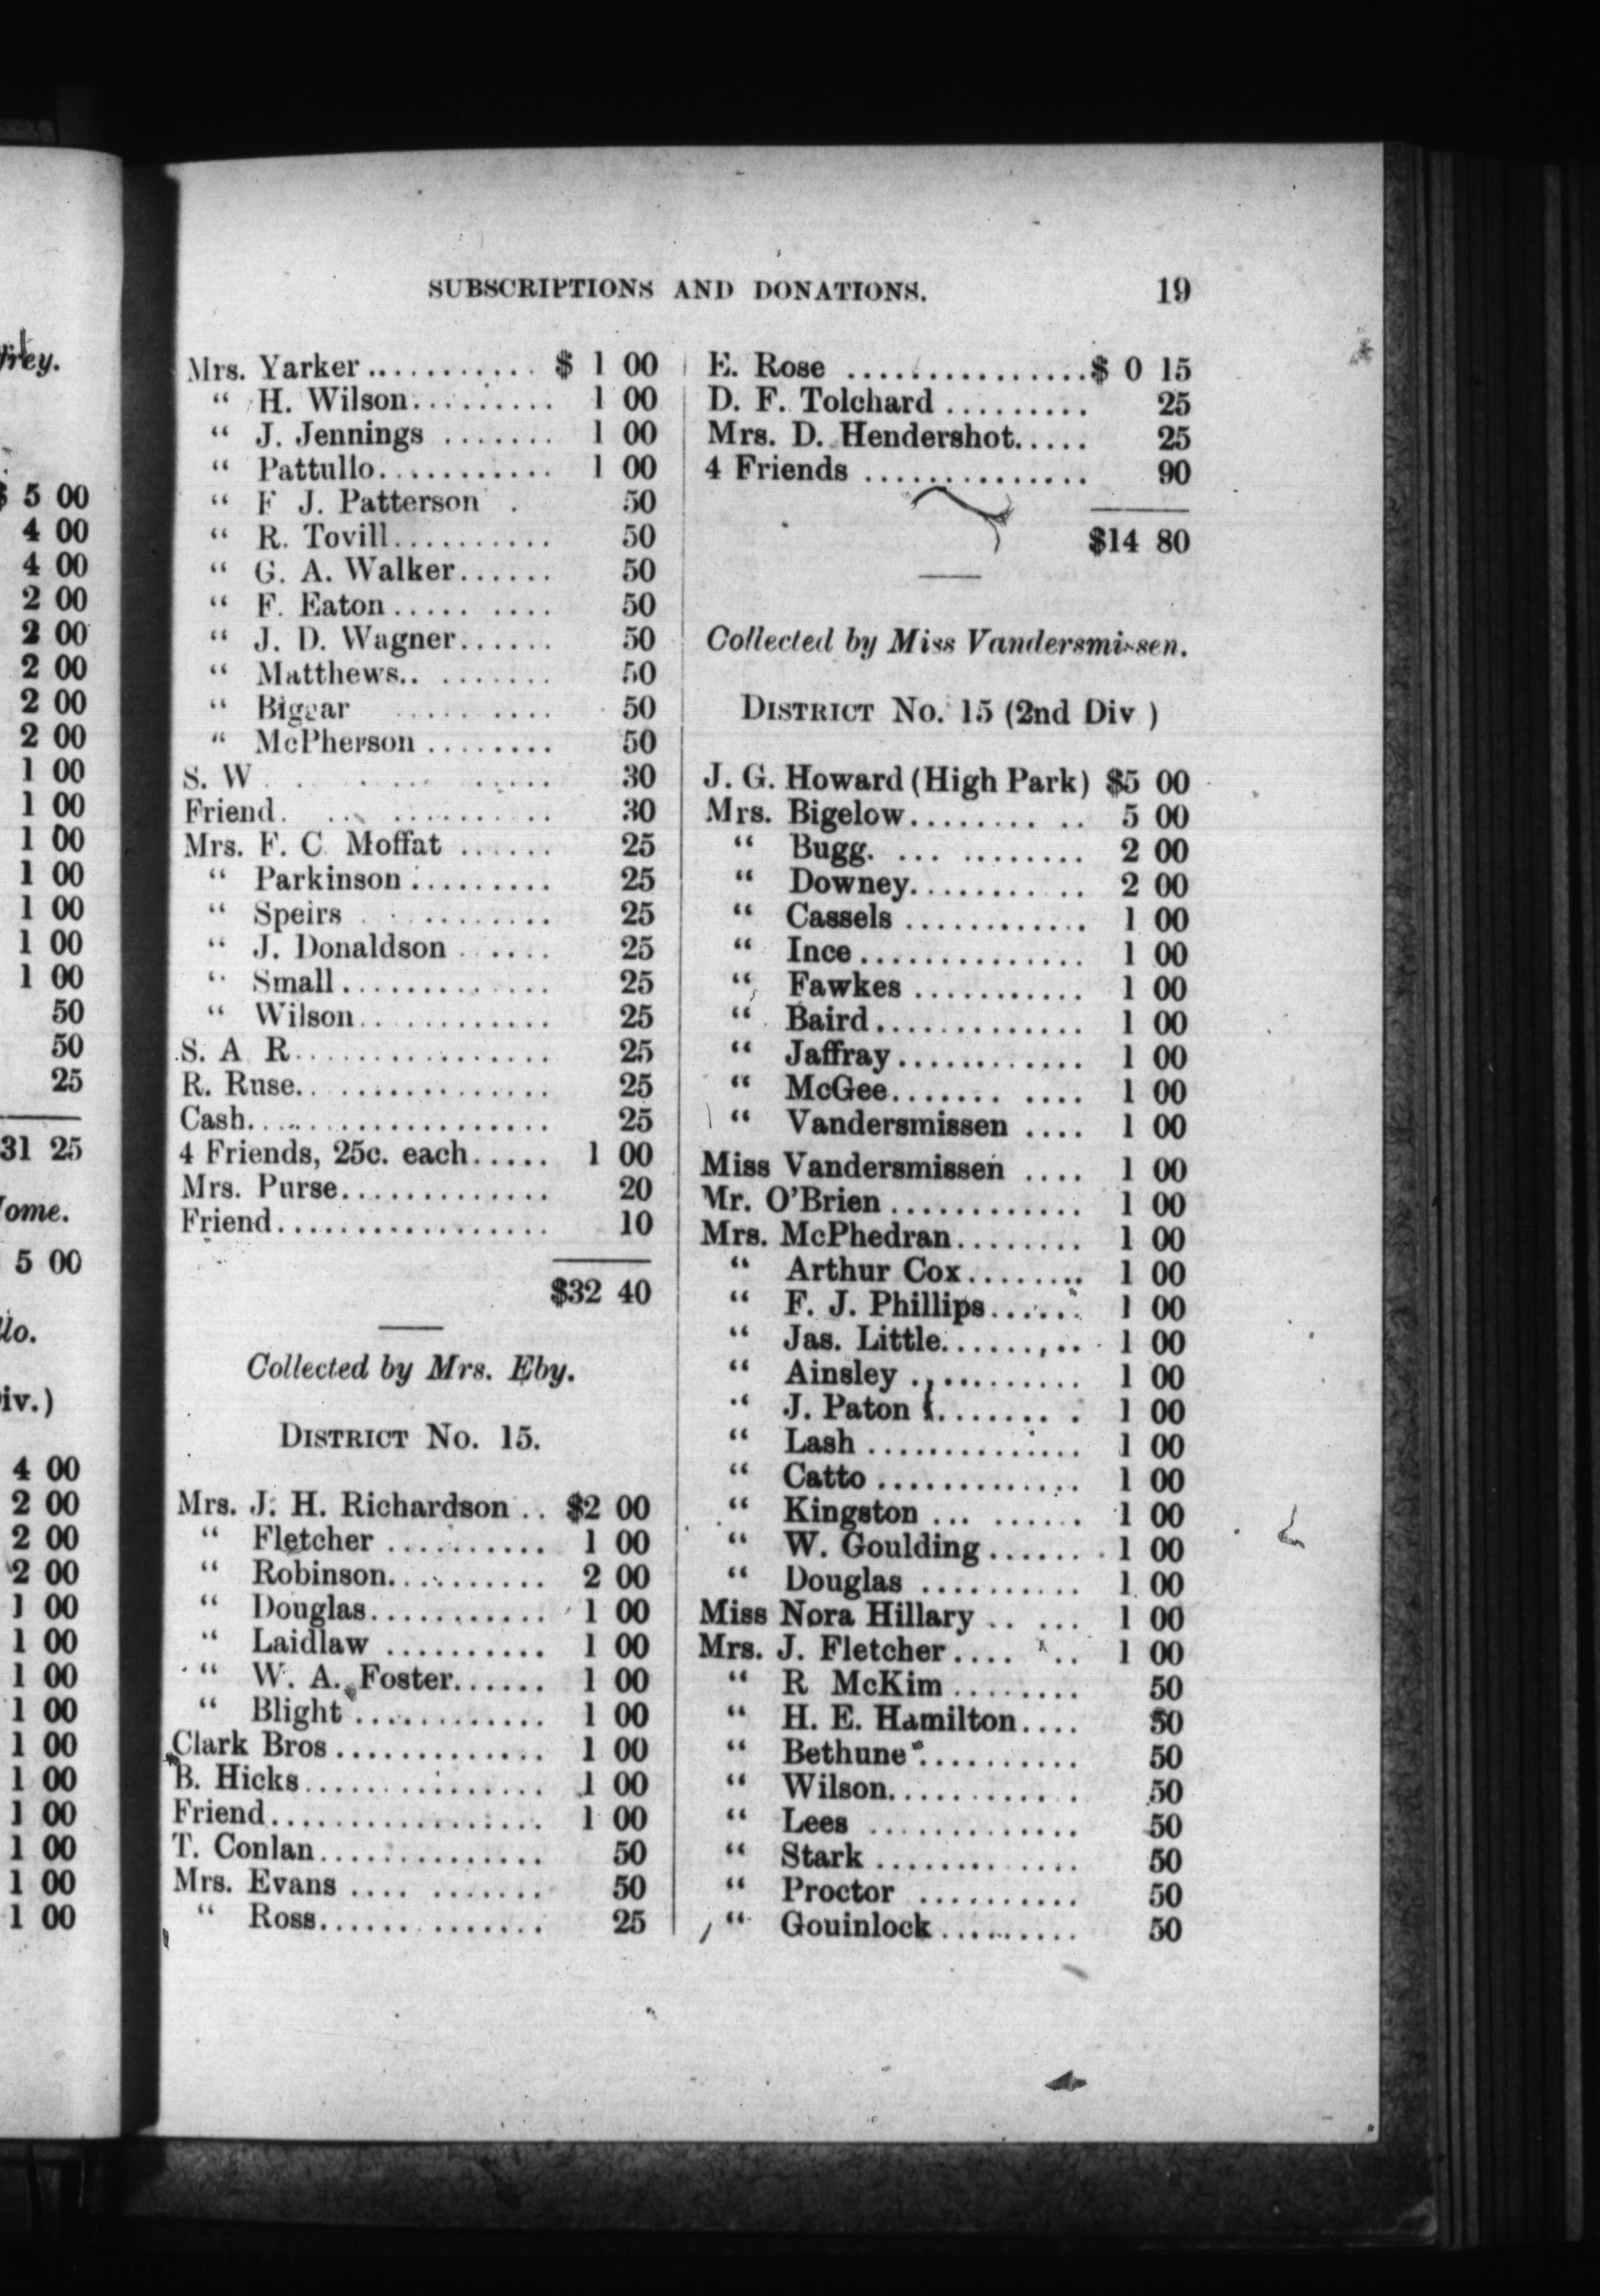 frey.
$ 5 00
4 00
4 00
2 00
2 00
2 00
2 00
2 00
1 00
1 00
1 00
1 00
1 00
1 00
1 00
50
50
25
31 25
ome.
5 00
llo.
iv.)
4 00
2 00
2 00
2 00
1 00
1 00
1 00
1 00
1 00
1 00
1 00
1 00
1 00
1 00
SUBSCRIPTIONS AND DONATIONS. 19
Mrs. Yarker........... $ 1 00
“ H. Wilson......... 1 00
“ J. Jennings ....... 1 00
“ Pattullo........... 1 00
“ F J. Patterson . 50
“ R. Tovill.......... 50
“ G. A. Walker...... 50
“ F. Eaton..... .... 50
“ J. D. Wagner...... 50
“ Matthews.. ....... 50
“ Biggar .......... 50
“ McPherson ........ 50
S. W. . . . . ..... 30
Friend. ... .......... 30
Mrs. F. C Moffat ...... 25
“ Parkinson ......... 25
“ Speirs . . ........ 25
“ J. Donaldson ...... 25
“ Small............. 25
“ Wilson............ 25
S. A R................ 25
R. Ruse.. ............. 25
Cash................... 25
4 Friends, 25c. each..... 1 00
Mrs. Purse............. 20
Friend................. 10
$32 40
Collected by Mrs. Eby.
DISTRICT No. 15.
Mrs. J. H. Richardson .. $2 00
“ Fletcher .......... 1 00
“ Robinson.......... 2 00
“ Douglas........... 1 00
“ Laidlaw .......... 1 00
“ W. A. Foster...... 1 00
“ Blight ............ 1 00
Clark Bros ............. 1 00
B. Hicks............... 1 00
Friend................. 1 00
T. Conlan.............. 50
Mrs. Evans .... ....... 50
“ Ross.............. 25
E. Rose ...............$ 0 15
D. F. Tolchard ......... 25
Mrs. D. Hendershot..... 25
4 Friends .............. 90
$14 80
Collected by Miss Vandersmissen.
DISTRICT No. 15 (2nd Div )
J. G. Howard (High Park) $5 00
Mrs. Bigelow........ .. 5 00
“ Bugg. ... ........ 2 00
“ Downey........... 2 00
“ Cassels ............ 1 00
“ Ince.............. 1 00
“ Fawkes ........... 1 00
“ Baird............. 1 00
“ Jaffray............ 1 00
“ McGee....... .... 1 00
“ Vandersmissen .... 1 00
Miss Vandersmissen .... 1 00
Mr. O’Brien ............ 1 00
Mrs. McPhedran........ 1 00
“ Arthur Cox........ 1 00
“ F. J. Phillips...... 1 00
“ Jas. Little......... 1 00
“ Ainsley ........... 1 00
“ J. Paton ........ . 1 00
“ Lash .............. 1 00
“ Catto ............. 1 00
“ Kingston ... ...... 1 00
“ W. Goulding....... 1 00
“ Douglas .......... 1 00
Miss Nora Hillary .. ... 1 00
Mrs. J. Fletcher.... .. 1 00
“ R McKim ........ 50
“ H. E. Hamilton.... 50
“ Bethune .......... 50
“ Wilson............ 50
“ Lees ............. 50
“ Stark ............. 50
“ Proctor .......... 50
“ Gouinlock......... 50